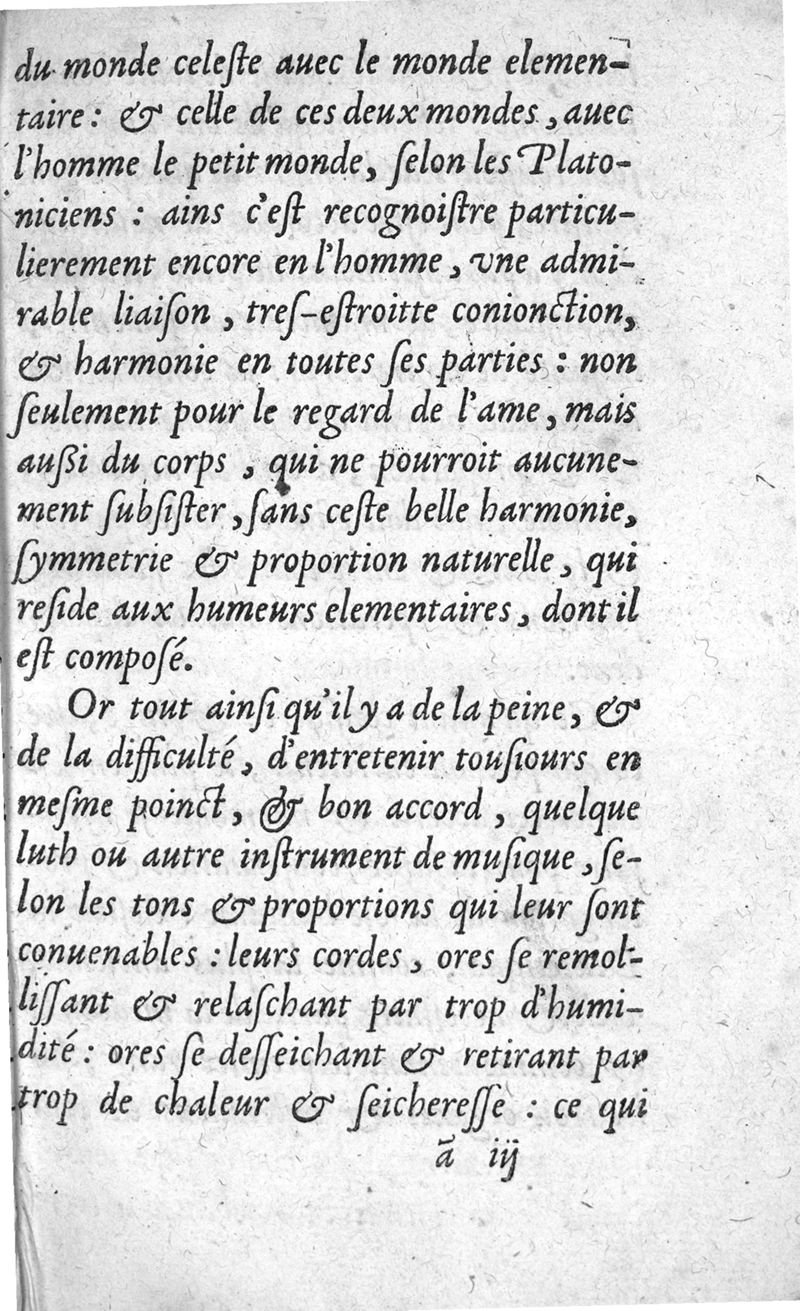 du monde celeſte auec le monde elemen-
taire : & celle de ces deux mondes, auec
l'homme le petit monde, ſelon les Plato-
niciens : ains c'eſt recognoiſtre particu-
lierement encore en l'homme, vne admi-
rable liaiſon, treſ-eſtroitte conionction,
& harmonie en toutes ſes parties : non
ſeulement pour le regard de l'ame, mais
auſsi du corps, qui ne pourroit aucune-
ment ſubſiſter, ſans ceſte belle harmonie,
ſymmetrie & proportion naturelle, qui
reſide aux humeurs elementaires, dont il
eſt compoſé.
Or tout ainſi qu'il y a de la peine, &
de la difficulté, d'entretenir touſiours en
meſme poinct, & bon accord, quelque
luth ou autre inſtrument de muſique, ſe-
lon les tons & proportions qui leur ſont
conuenables : leurs cordes, ores ſe remol-
liſſant & relaſchant par trop d'humi-
dité : ores ſe deſſeichant & retirant par
trop de chaleur & ſeichereſſe : ce qui
ã iij